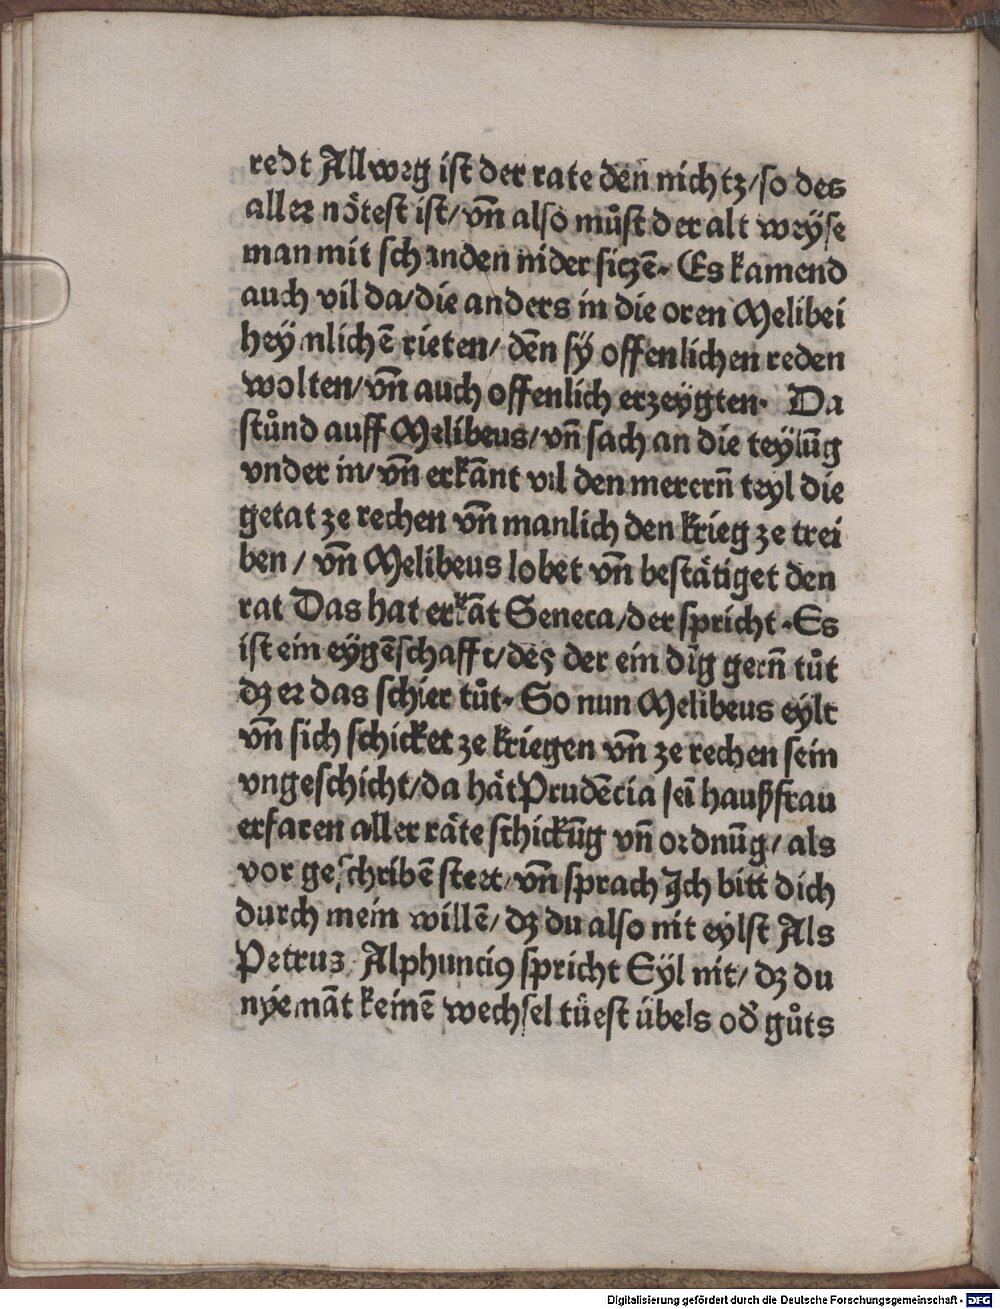 redt Allweg ist der rate den nichtz/so des
aller nötest ist/vn̄ also můst der alt weÿse
man mit schanden nider siczē. Es kamend
auch vil da/die anders in die oren Melibei
heÿmlichē rieten/ dēn sÿ offenlichen reden
wolten/vn̄ auch offenlich erzeÿgten. Da
stůnd auff Melibeus/vn̄ sach an die teÿlūg
vnder in/vn̄ erkānt vil den merern̄ teyl die
getat ze rechen vn̄ manlich den krieg ze trei
ben / vn̄ Melibeus lobet vn̄ bestätiget den
rat Das hat erkāt Seneca/der spricht .Es
ist ein eÿgēschafft/des der ein dīg gern̄ tůt
dz er das schier tůt. So nun Melibeus eylt
vn̄ sich schicket ze kriegen vn̄ ze rechen sein
vngeschicht/da hät Prudēcia sei̅ haußfrau
erfaren aller räte schickūg vn̄ ordnūg/ als
vor geschribē steet/vn̄ sprach Ich bitt dich
durch mein willē/ dz du also nit eylst Als
Petrus Alphunciꝰ spricht Eyl nit/ dz du
nÿemāt keinē wechsel tüest übels od̕ gůts
Digitalisierung gefördert durch die Deutsche Forschungsgemeinschaft - DFG